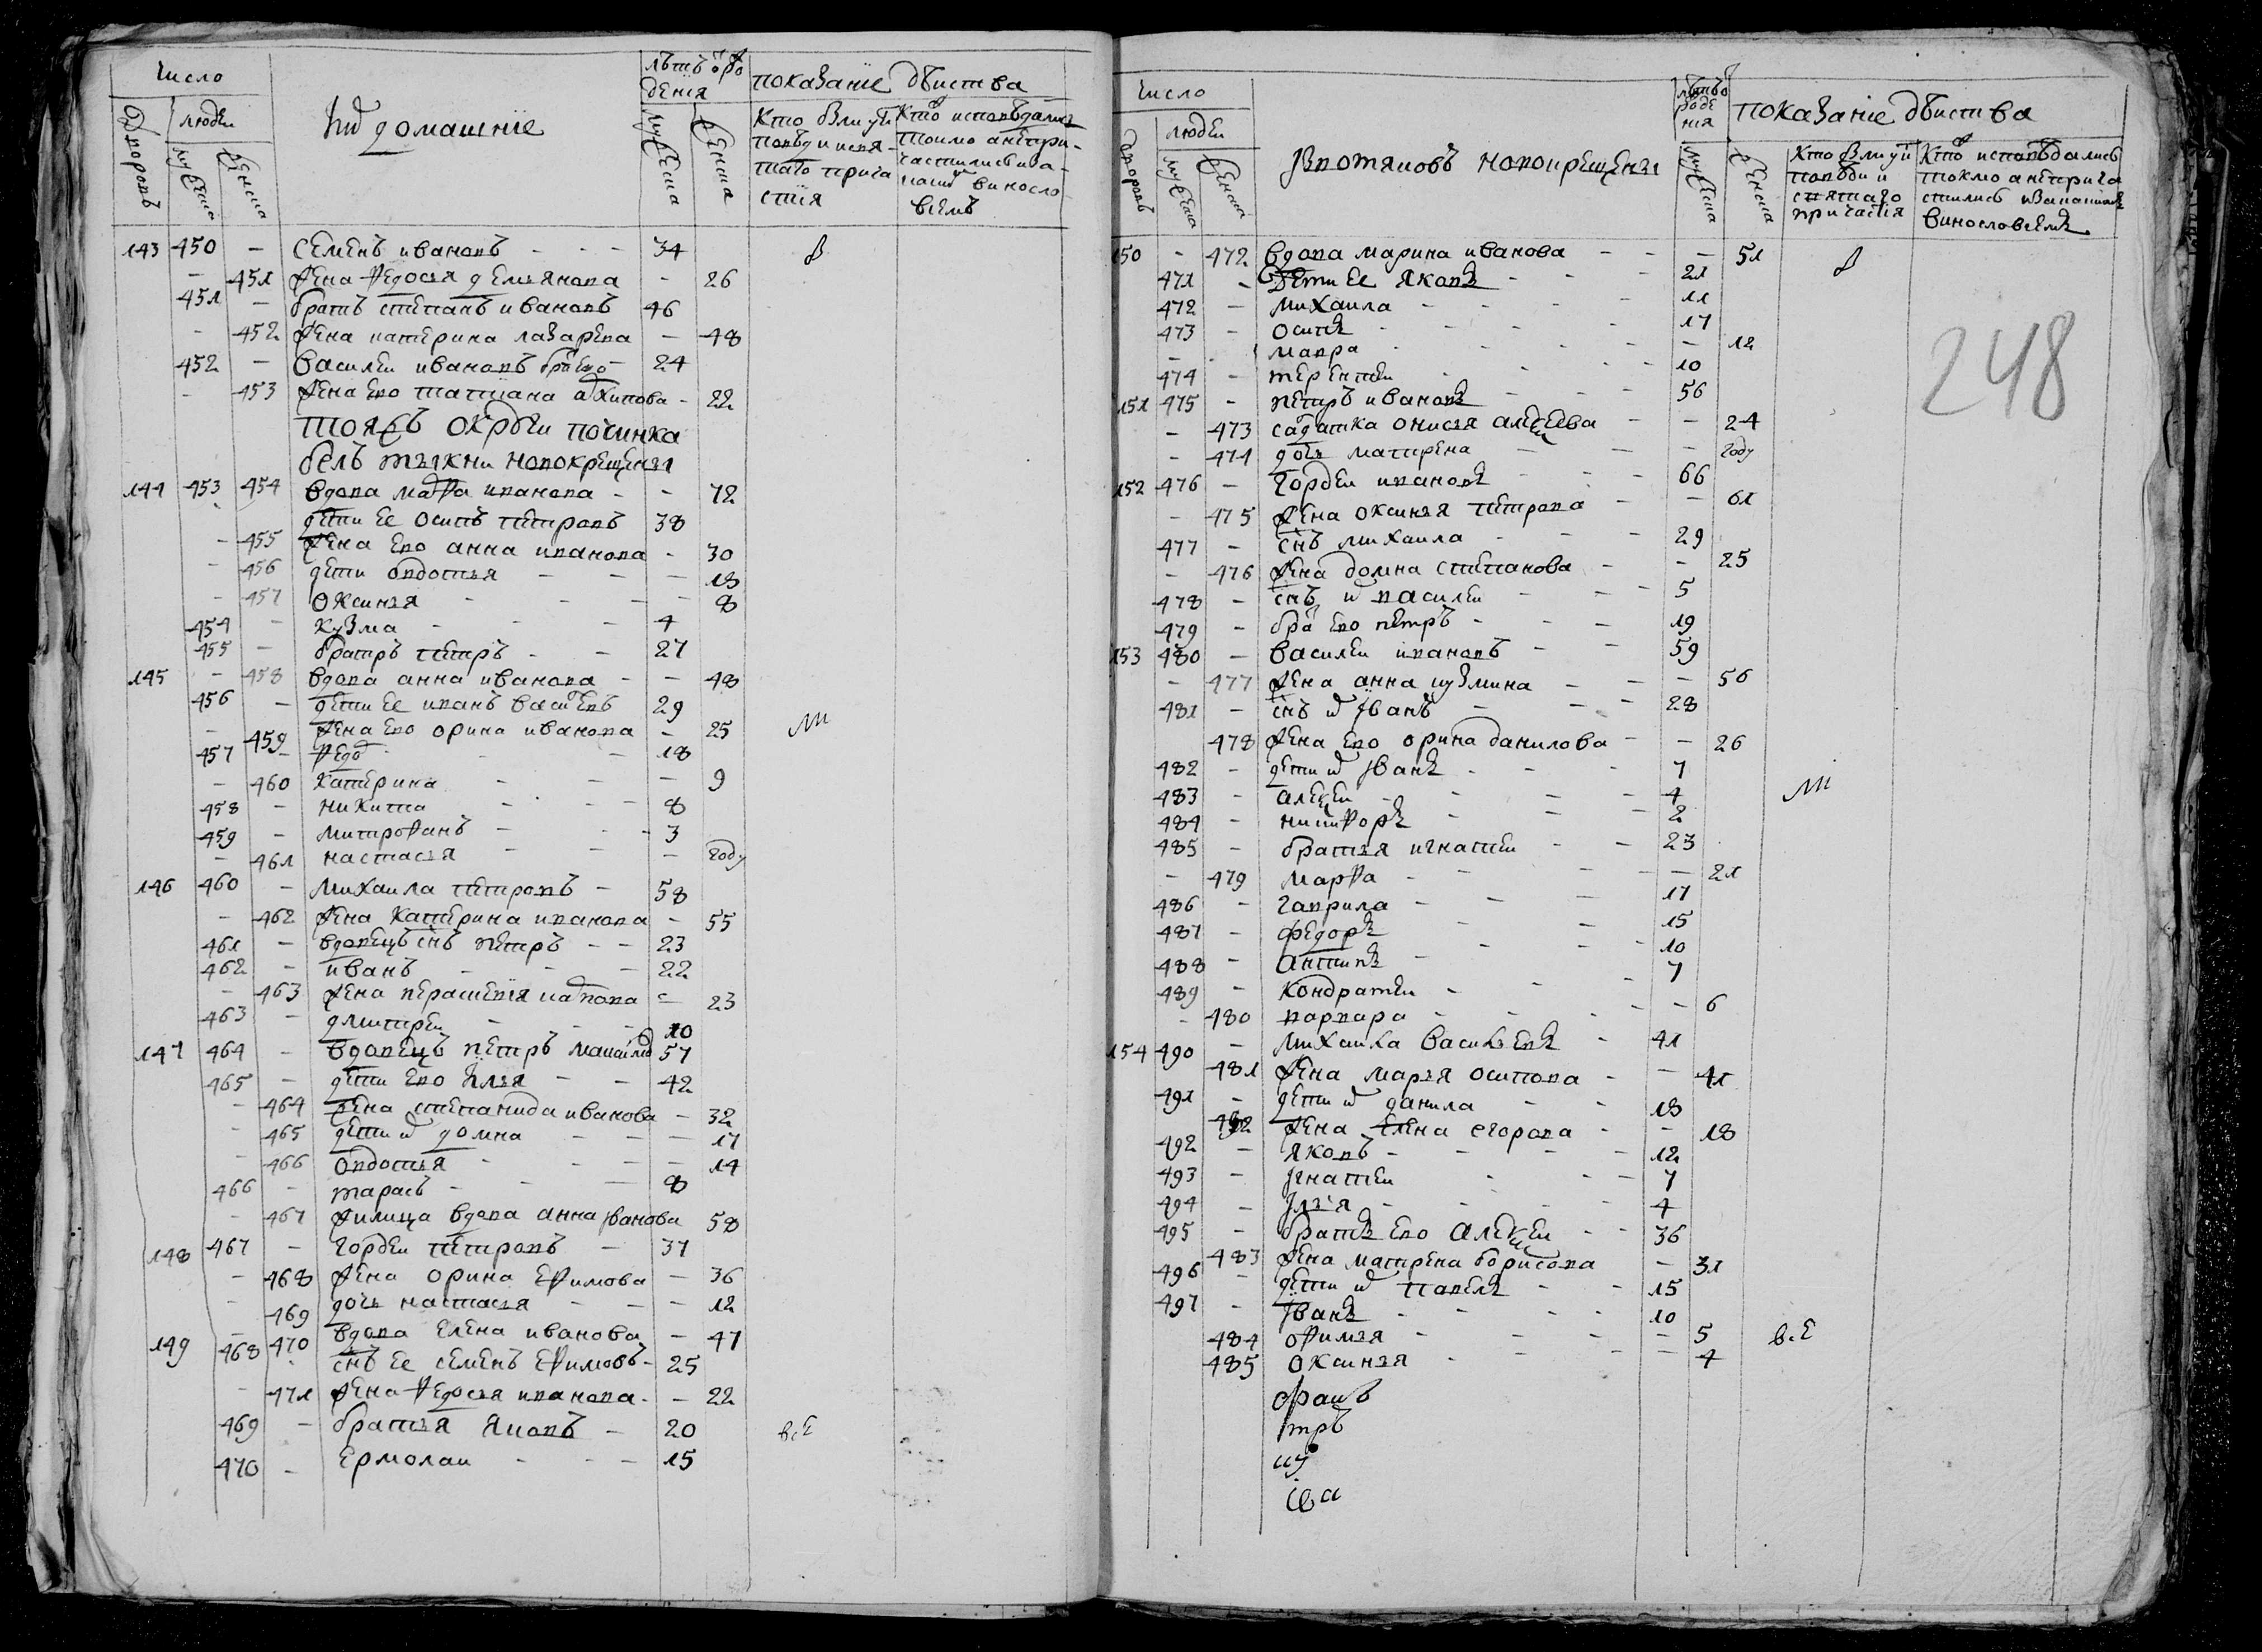 число
людеи
дворовъ
мужеска
женска
и домашние
лѣтъ от рождения
показание дѣиства
мужеска
женска
Кто были у исповѣди и святаго причастия
Кто исповѣдались токмо а не причастились и за каким винословием
143 450 – Семенъ ивановъ – – – 34
– 451 жена Федосья демьянова – 26
451 – братъ степанъ ивановъ 46
– 452 жена катерина лазарева – 48
452 – василеи ивановъ братъ ево – 24
– 453 жена ево татиана архипова – 22
тояжъ округи починка
новокрещены
144 453 454 вдова марфа иванова – – 72
дети ее осипъ петровъ 38
– 455 жена ево анна иванова – 30
– 456 дети овдотья – – – 13
– 457 оксинья – – – 8
454 – кузма – – – 4
455 – братъ петръ – – 27
145 – 458 вдова анна иванова – – 48
456 – дети ее иванъ васильевъ 29
– 459 жена ево орина иванова – 25
457 – Федоръ – – 18
– 460 катерина – – – 9
458 – никита – – – 8
459 – митрофанъ – – – 3
– 461 настасья – – – году
146 460 – михаила петровъ – 58
– 462 жена катерина иванова – 55
461 – вдовецъ снъ петръ – – 23
462 – иванъ – – – 22
– 463 жена парасковия карпова – 23
463 – дмитреи – – – 10
147 464 – вдовецъ петръ 57
465 – дети ево илья – – 42
– 464 жена степанида иванова – 32
– 465 дети их домна – – – 17
– 466 овдотья – – – 14
466 – тарасъ – – – 8
– 467 вдова анна иванова 58
148 467 – гордеи петровъ – 37
– 468 жена орина ефимова – 36
– 469 дочь настасья – – – 12
149 – 470 вдова елена иванова – 47
468 – снъ ее семенъ ефимовъ – 25
– 471 жена Федосья иванова – – 22
469 – братья яковъ – 20
470 – ермолаи – – – 15
все
число
людеи
дворовъ
мужеска
женска
вотяковъ новокрещены
лѣтъ от рождения
показание дѣиства
мужеска
женска
Кто были у исповѣди и святаго причастия
Кто исповѣдались токмо а не причастились и за каким винословием
248
150 – 472 вдова марина иванова – – – 51
471 – дети ее яковъ – – – 21
472 – михаила – – – 11
473 – осипъ – – – 17
– мавра – – – 12
474 – терентеи – – – 10
151 475 – петръ ивановъ – – – 56
– 473 солдатка онисья алексеева – – 24
– 474 дочь матрена – – – году
152 476 – гордеи ивановъ – – – 66
– 475 жена оксинья петрова – – 61
477 – снъ михаила – – – 29
– 476 жена домна степанова – – 25
478 – снъ их василеи – – – 5
479 – братъ ево петръ – – – 19
153 480 – василеи ивановъ – – 59
– 477 жена анна кузмина – – – 56
481 – снъ их иванъ – – – 28
478 жена ево орина данилова – – 26
482 – дети их иванъ – – – 7
483 – алексеи – – – 4
484 – никифоръ – – – 2
485 – братья игнатеи – – 23
– 479 марфа – – – 21
486 – гаврила – – – 17
487 – федоръ – – – 15
488 – антипъ – – – 10
489 – кондратеи – – – 7
– 480 варвара – – – 6
154 490 – михаила васильевъ – 41
481 жена марья осипова – – 41
491 – дети их данила – – 18
482 жена елена егорова – – 18
492 – яковъ – – – 12
493 – игнатеи – – – 7
494 – илья – – – 4
495 – братъ ево алексеи – – 36
483 жена матрена борисова – 31
496 – дети их павелъ – – 15
497 – иванъ – – – 10
484 офимья – – – 5
485 оксинья – – – 4
все